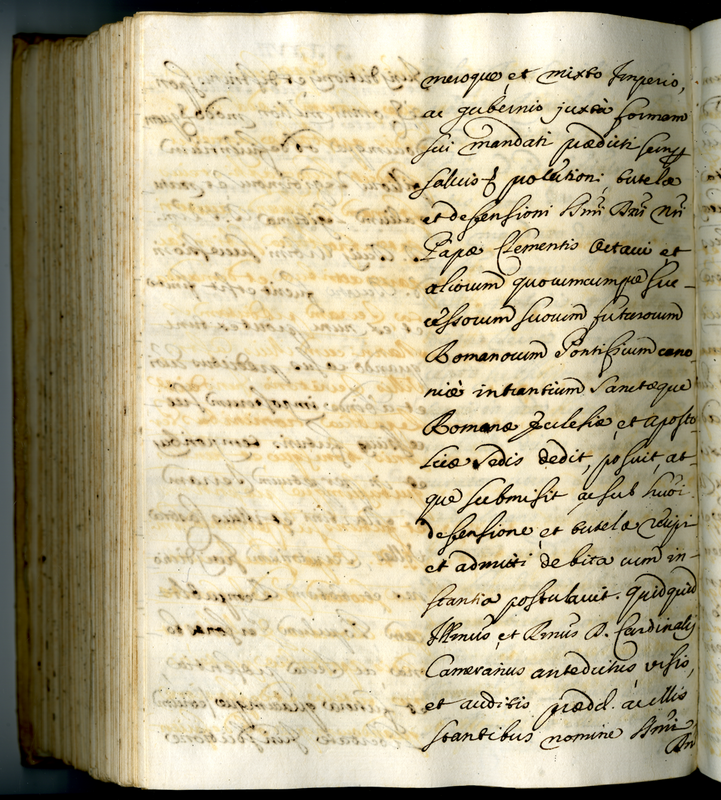 meroque et mixto Imperio,
ac gubernio juxta formam
sui mandati prædicti semp
salvis protectioni, tutelæ
et defensioni Smi Dni Nri
Papæ Clementis Octavi et
aliorum quorumcumque suc-
cessorum suorum futurorum
Romanorum Pontificum cano-
nicè intrantium Sanctæque
Romanæ Ecclesiæ et Aposto-
licæ Sedis dedit, posuit, at-
que submisit ac sub huiõi
defensione et tutela recipi
et admitti debita cum in-
stantia postulavit. quidquid
Illmus et Rmus D. Cardinalis
Camerarius antedictus visis,
et auditis prædd. ac illis
stantibus nomine Smi
Dn